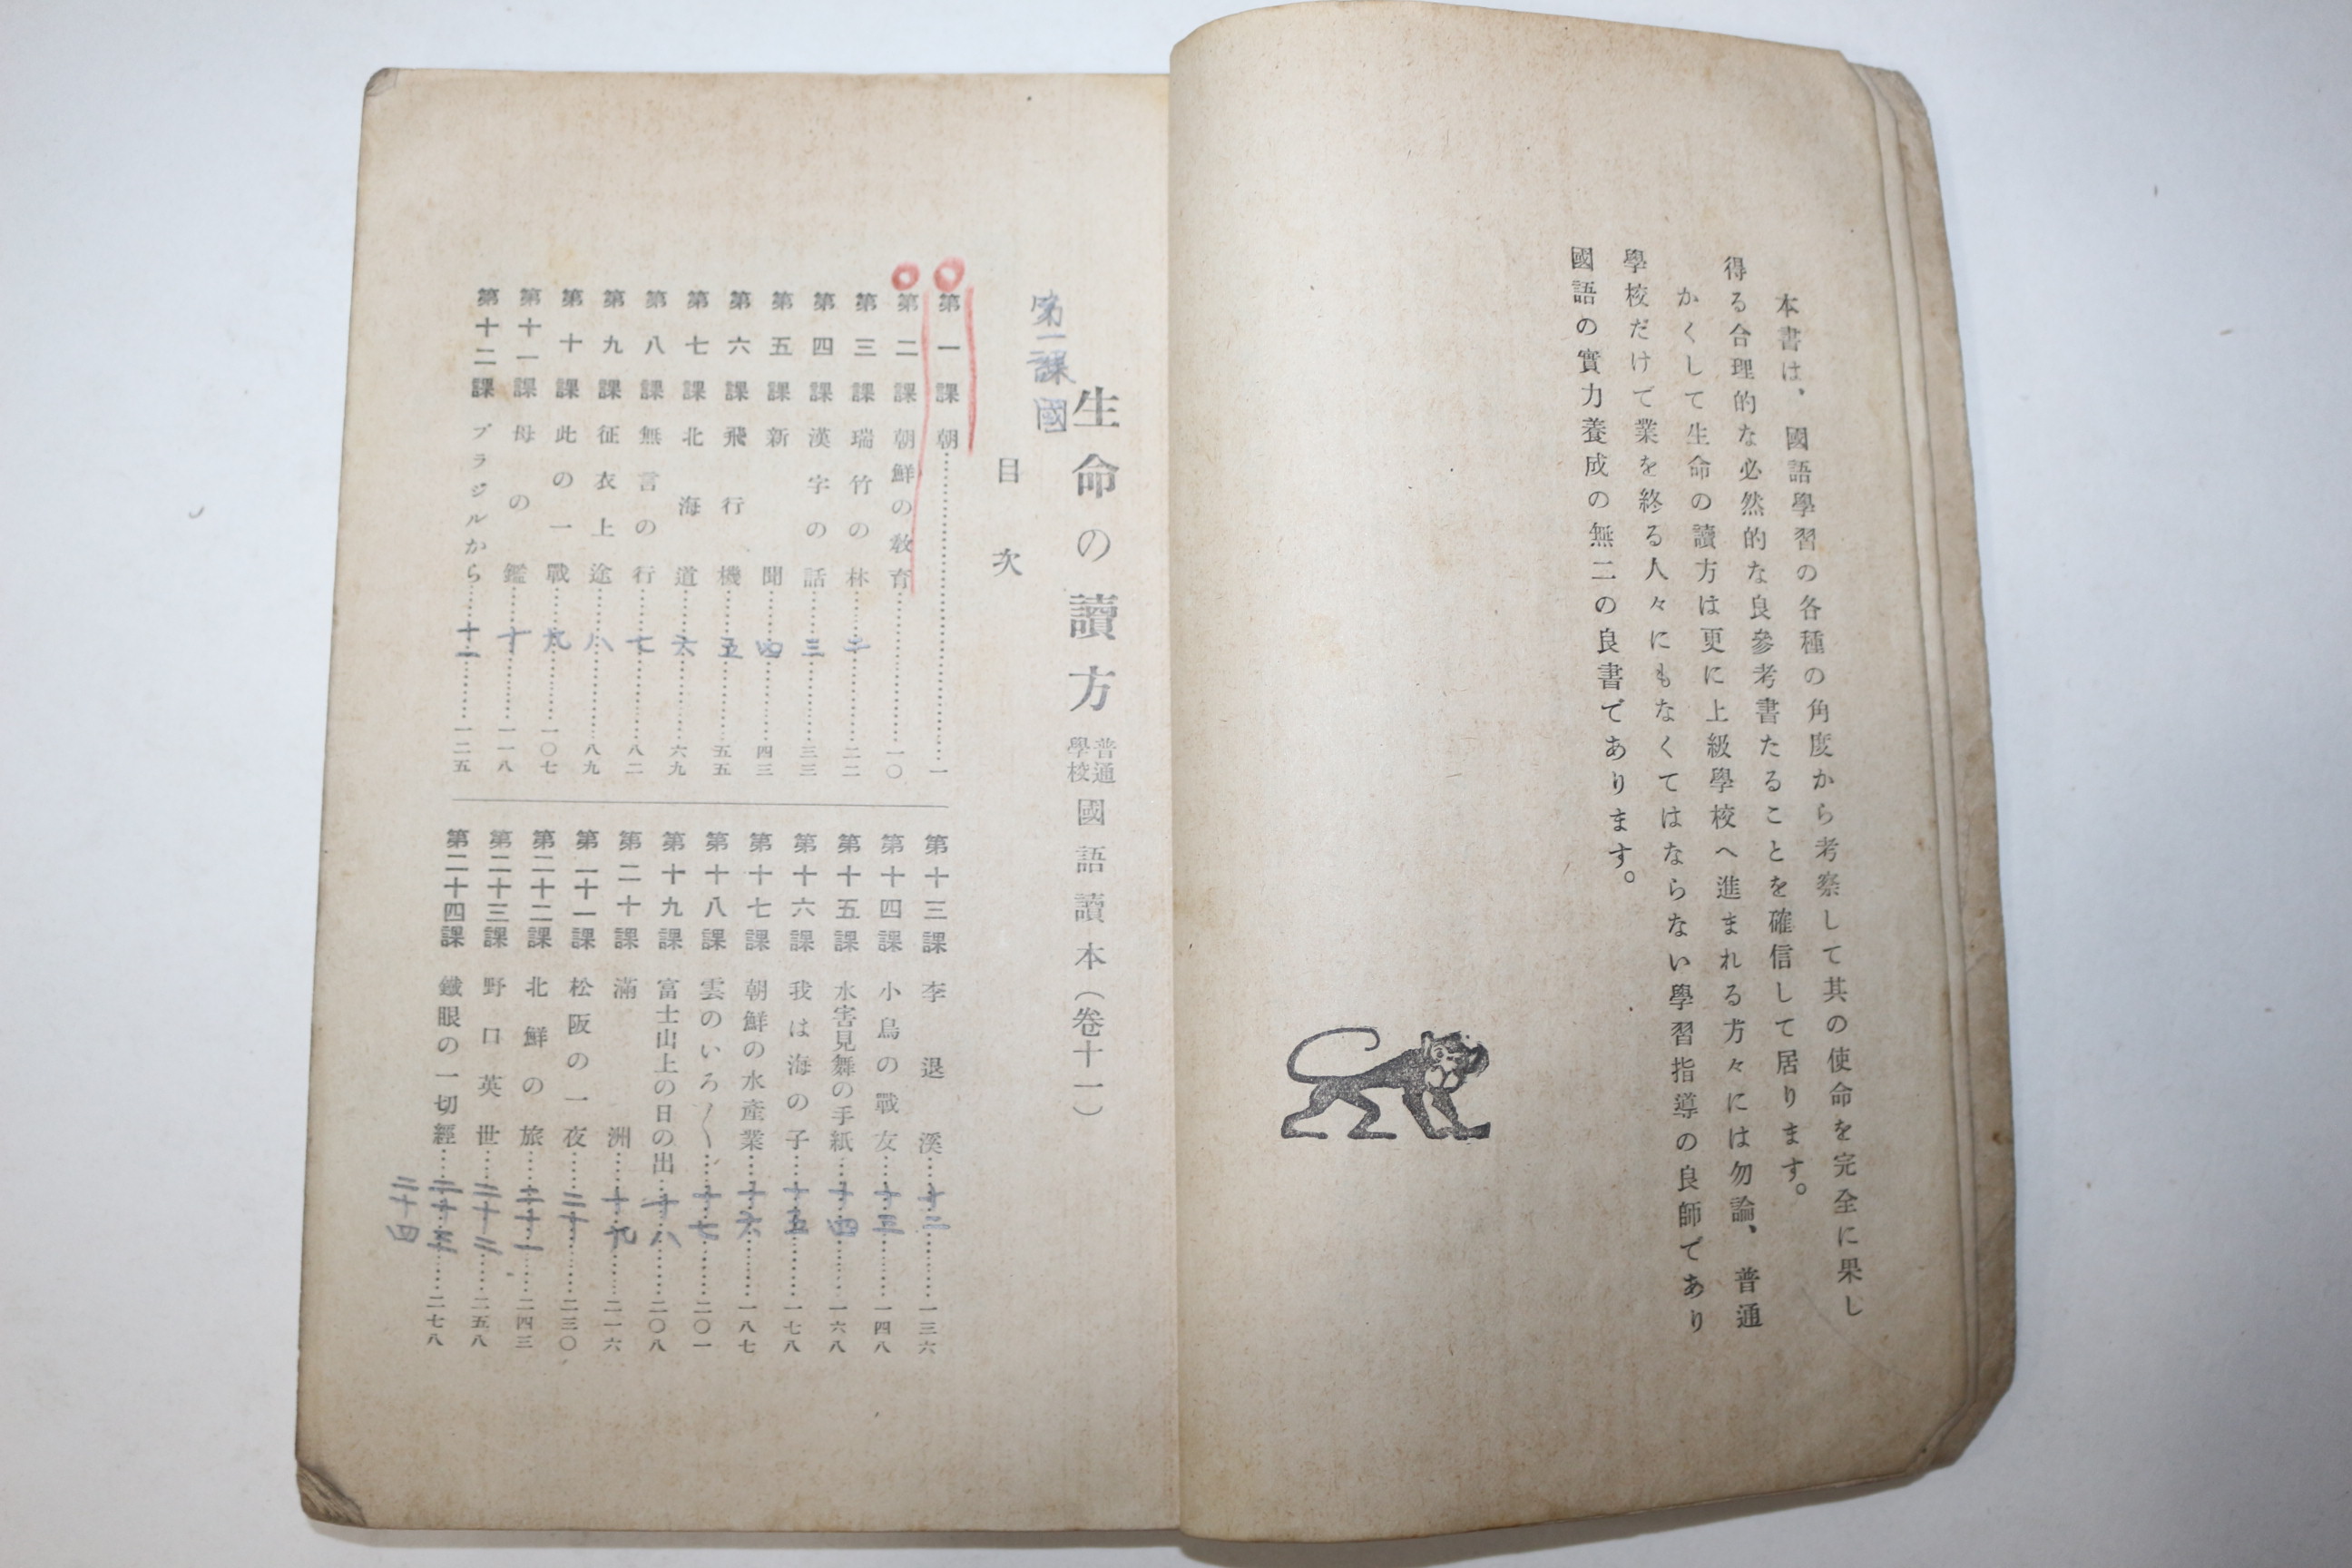 本書は、國語學習の各種の角度から考察して其の使命を完全に果し
得る合理的な必然的な良參考書たることを確信して居ります。
かくして生命の讀方は更に上級學校へ進まれる方々には勿論、普通
學校だけで業を終る人々にもなくてはならない學習指導の良師であり
國語の實力養成の無二の良書であります。
生命の讀方 普通學校 國語讀本(卷十一)
第一課 國
目次
第一課 朝……一
第二課 朝鮮の敎育……一〇
第三課 瑞竹の林……二……二二
第四課 漢字の話……三……三三
第五課 新聞……四……四三
第六課 飛行機……五……五五
第七課 北海道……六……六九
第八課 無言の行……七……八二
第九課 征衣上途……八……八九
第十課 此の一戰……九……一〇七
第十一課 母の鑑……十……一一八
第十二課 ブラジルから……十一……一二五
第十三課 李退溪……十二……一三六
第十四課 小鳥の戰友……十三……一四八
第十五課 水害見舞の手紙……十四……一六八
第十六課 我は海の子……十五……一七八
第十七課 朝鮮の水產業……十六……一八七
第十八課 雲のいろ〳〵……十七……二〇一
第十九課 富士山上の日の出……十八……二〇八
第二十課 滿洲……十九……二一六
第二十一課 松阪の一夜……二十……二三〇
第二十二課 北鮮の旅……二十一……二四三
第二十三課 野口英世……二十二……二五八
第二十四課 鐵眼の一切經……二十三……二七八
二十四